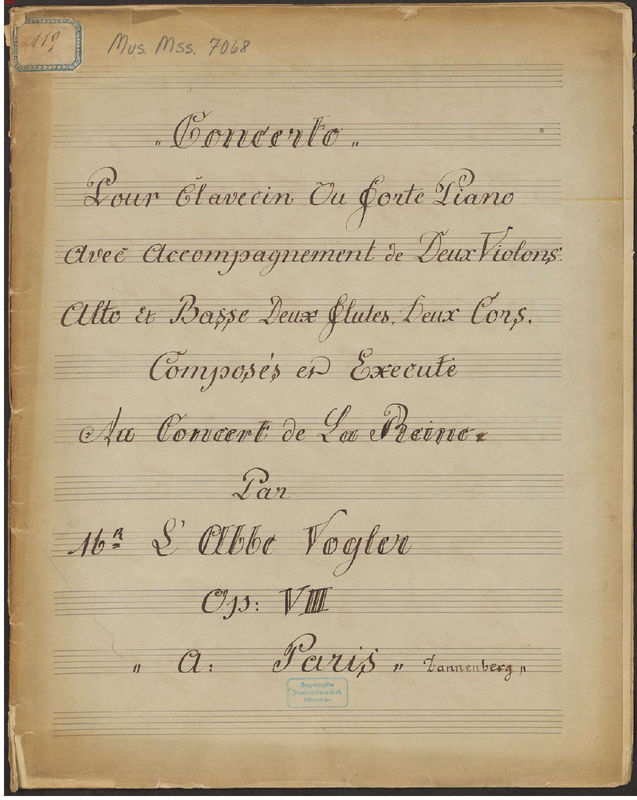 119
Mus. Mss. 7068
„ Concerto „
Pour Clavecin Ou forte Piano
Avec Accompagnement de Deux Violons
Alto et Basse Deux flutes, Deux Cors.
Composés et Executé
Au Concert de La Reine.
Par
Mr L' Abbe Vogler
Op: VIII
„ A: Paris „ Dannenberg „
Bayerische
Staatsbibliothek
München